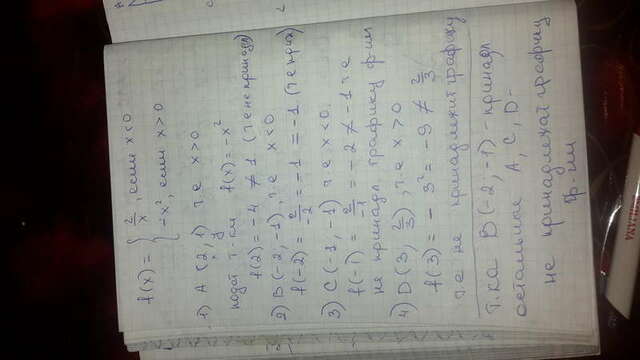 f(x) = { 2/x, если x<0
-x², если x>0
1) A (2, 1) т.е x>0
x, y
f(x) = -x²
f(2) = -4 ≠ 1 (т.е не принадл)
2) B(-2, -1), т.е x<0
f(-2) = 2/-2 = -1 = -1 (т.е прин)
3) C(-1, -1) т.е x<0
f(-1) = 2/-1 = -2 ≠ -1 т.е
не принадл графику ф-ии
4) D(3, 2/3), т.е x>0
f(3) = -3² = -9 ≠ 2/3
т.е не принадлежит графику
т.ка B(-2, -1) - принадл
остальные A, C, D -
не принадлежат графику
ф-ии